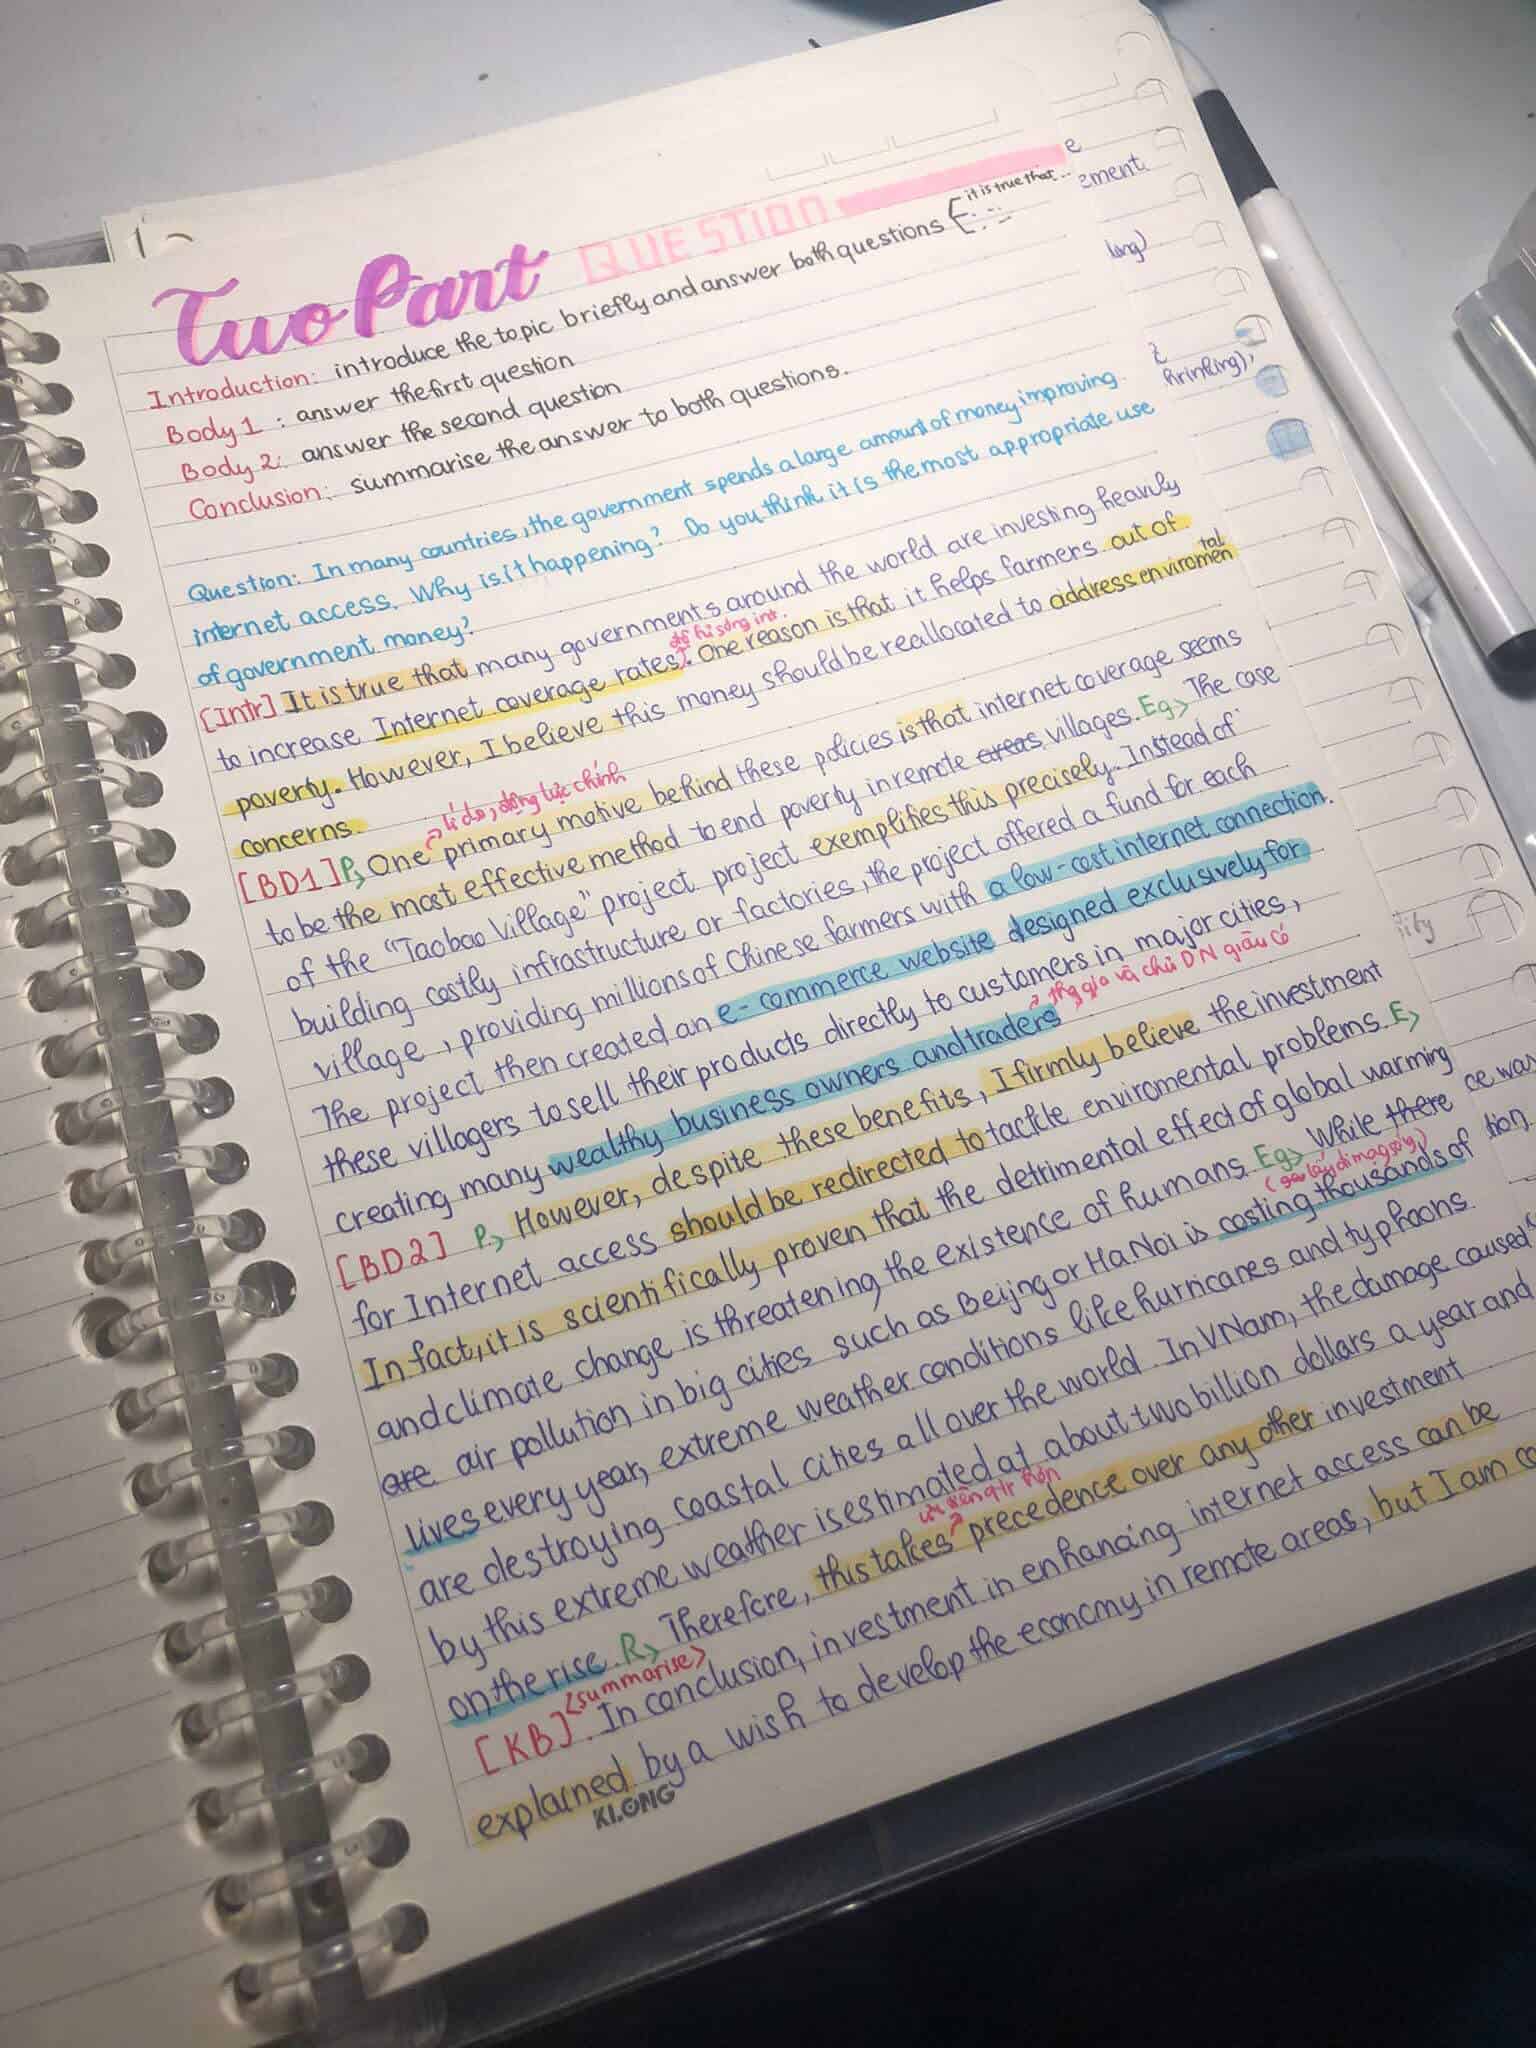 Two Part QUESTION
Introduction: introduce the topic briefly and answer both questions { it is true that...
Body 1 : answer the first question
Body 2: answer the second question
Conclusion: summarise the answer to both questions.
Question: In many countries, the government spends a large amount of money improving
internet access. Why is it happening? Do you think it is the most appropriate use
of government money?
[Intr] It is true that many governments around the world are investing heavily
to increase Internet coverage rates. One reason is that it helps farmers out of
poverty. However, I believe this money should be reallocated to address enviromental
concerns.
lí do, động lực chính
[BD1] P> One primary motive behind these policies is that internet coverage seems
to be the most effective method to end poverty in remote areas villages. Eg> The case
of the "Taobao Village" project project exemplifies this precisely. Instead of
building costly infrastructure or factories, the project offered a fund for each
village, providing millions of Chinese farmers with a low-cost internet connection.
The project then created an e-commerce website designed exclusively for
these villagers to sell their products directly to customers in major cities,
creating many wealthy business owners and traders
thg gia và chủ DN giàu có
[BD2] P> However, despite these benefits, I firmly believe the investment
for Internet access should be redirected to tackle enviromental problems. E>
In fact, it is scientifically proven that the detrimental effect of global warming
and climate change is threatening the existence of humans. Eg> While there
are air pollution in big cities such as Beijng or Ha Noi is costing thousands of
lives every year, extreme weather conditions like hurricanes and typhoons
are destroying coastal cities all over the world. In VNam, the damage caused
by this extreme weather is estimated at about two billion dollars a year and
on the rise. R> Therefore, this takes precedence over any other investment
<summarise>
[KB]. In conclusion, investment in enhancing internet access can be
explained by a wish to develop the economy in remote areas, but I am co
KLONG
e
ement.
long)
hrinking),
ce was
tion.